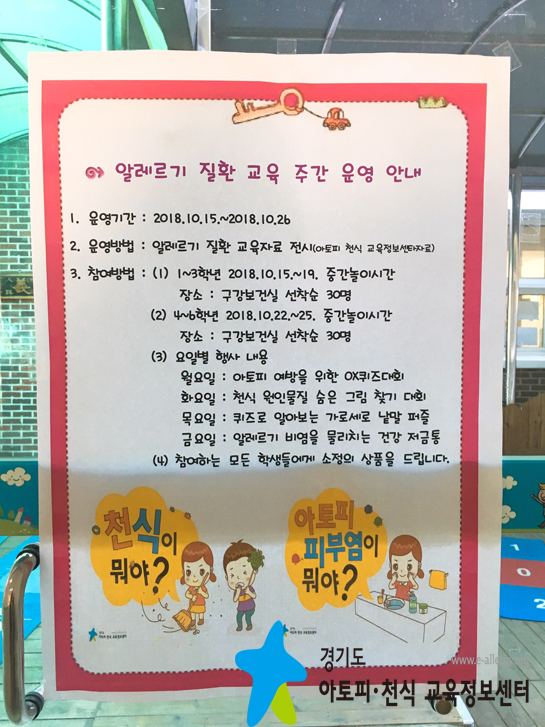 알레르기 질환 교육 주간 운영 안내
1. 운영기간 : 2018.10.15.~2018.10.26
2. 운영방법 : 알레르기 질환 교육자료 전시(아토피 천식 교육정보센타자료)
3. 참여방법 : (1) 1~3학년 2018.10.15.~19. 중간놀이시간
장소 : 구강보건실 선착순 30명
(2) 4~6학년 2018.10.22.~25. 중간놀이시간
장소 : 구강보건실 선착순 30명
(3) 요일별 행사 내용
월요일 : 아토피 예방을 위한 OX퀴즈대회
화요일 : 천식 원인물질 숨은 그림 찾기 대회
목요일 : 퀴즈로 알아보는 가로세로 낱말 퍼즐
금요일 : 알레르기 비염을 물리치는 건강 저금통
(4) 참여하는 모든 학생들에게 소정의 상품을 드립니다.
천식이
뭐야?
아토피
피부염이
뭐야?
경기도
아토피·천식 교육정보센터